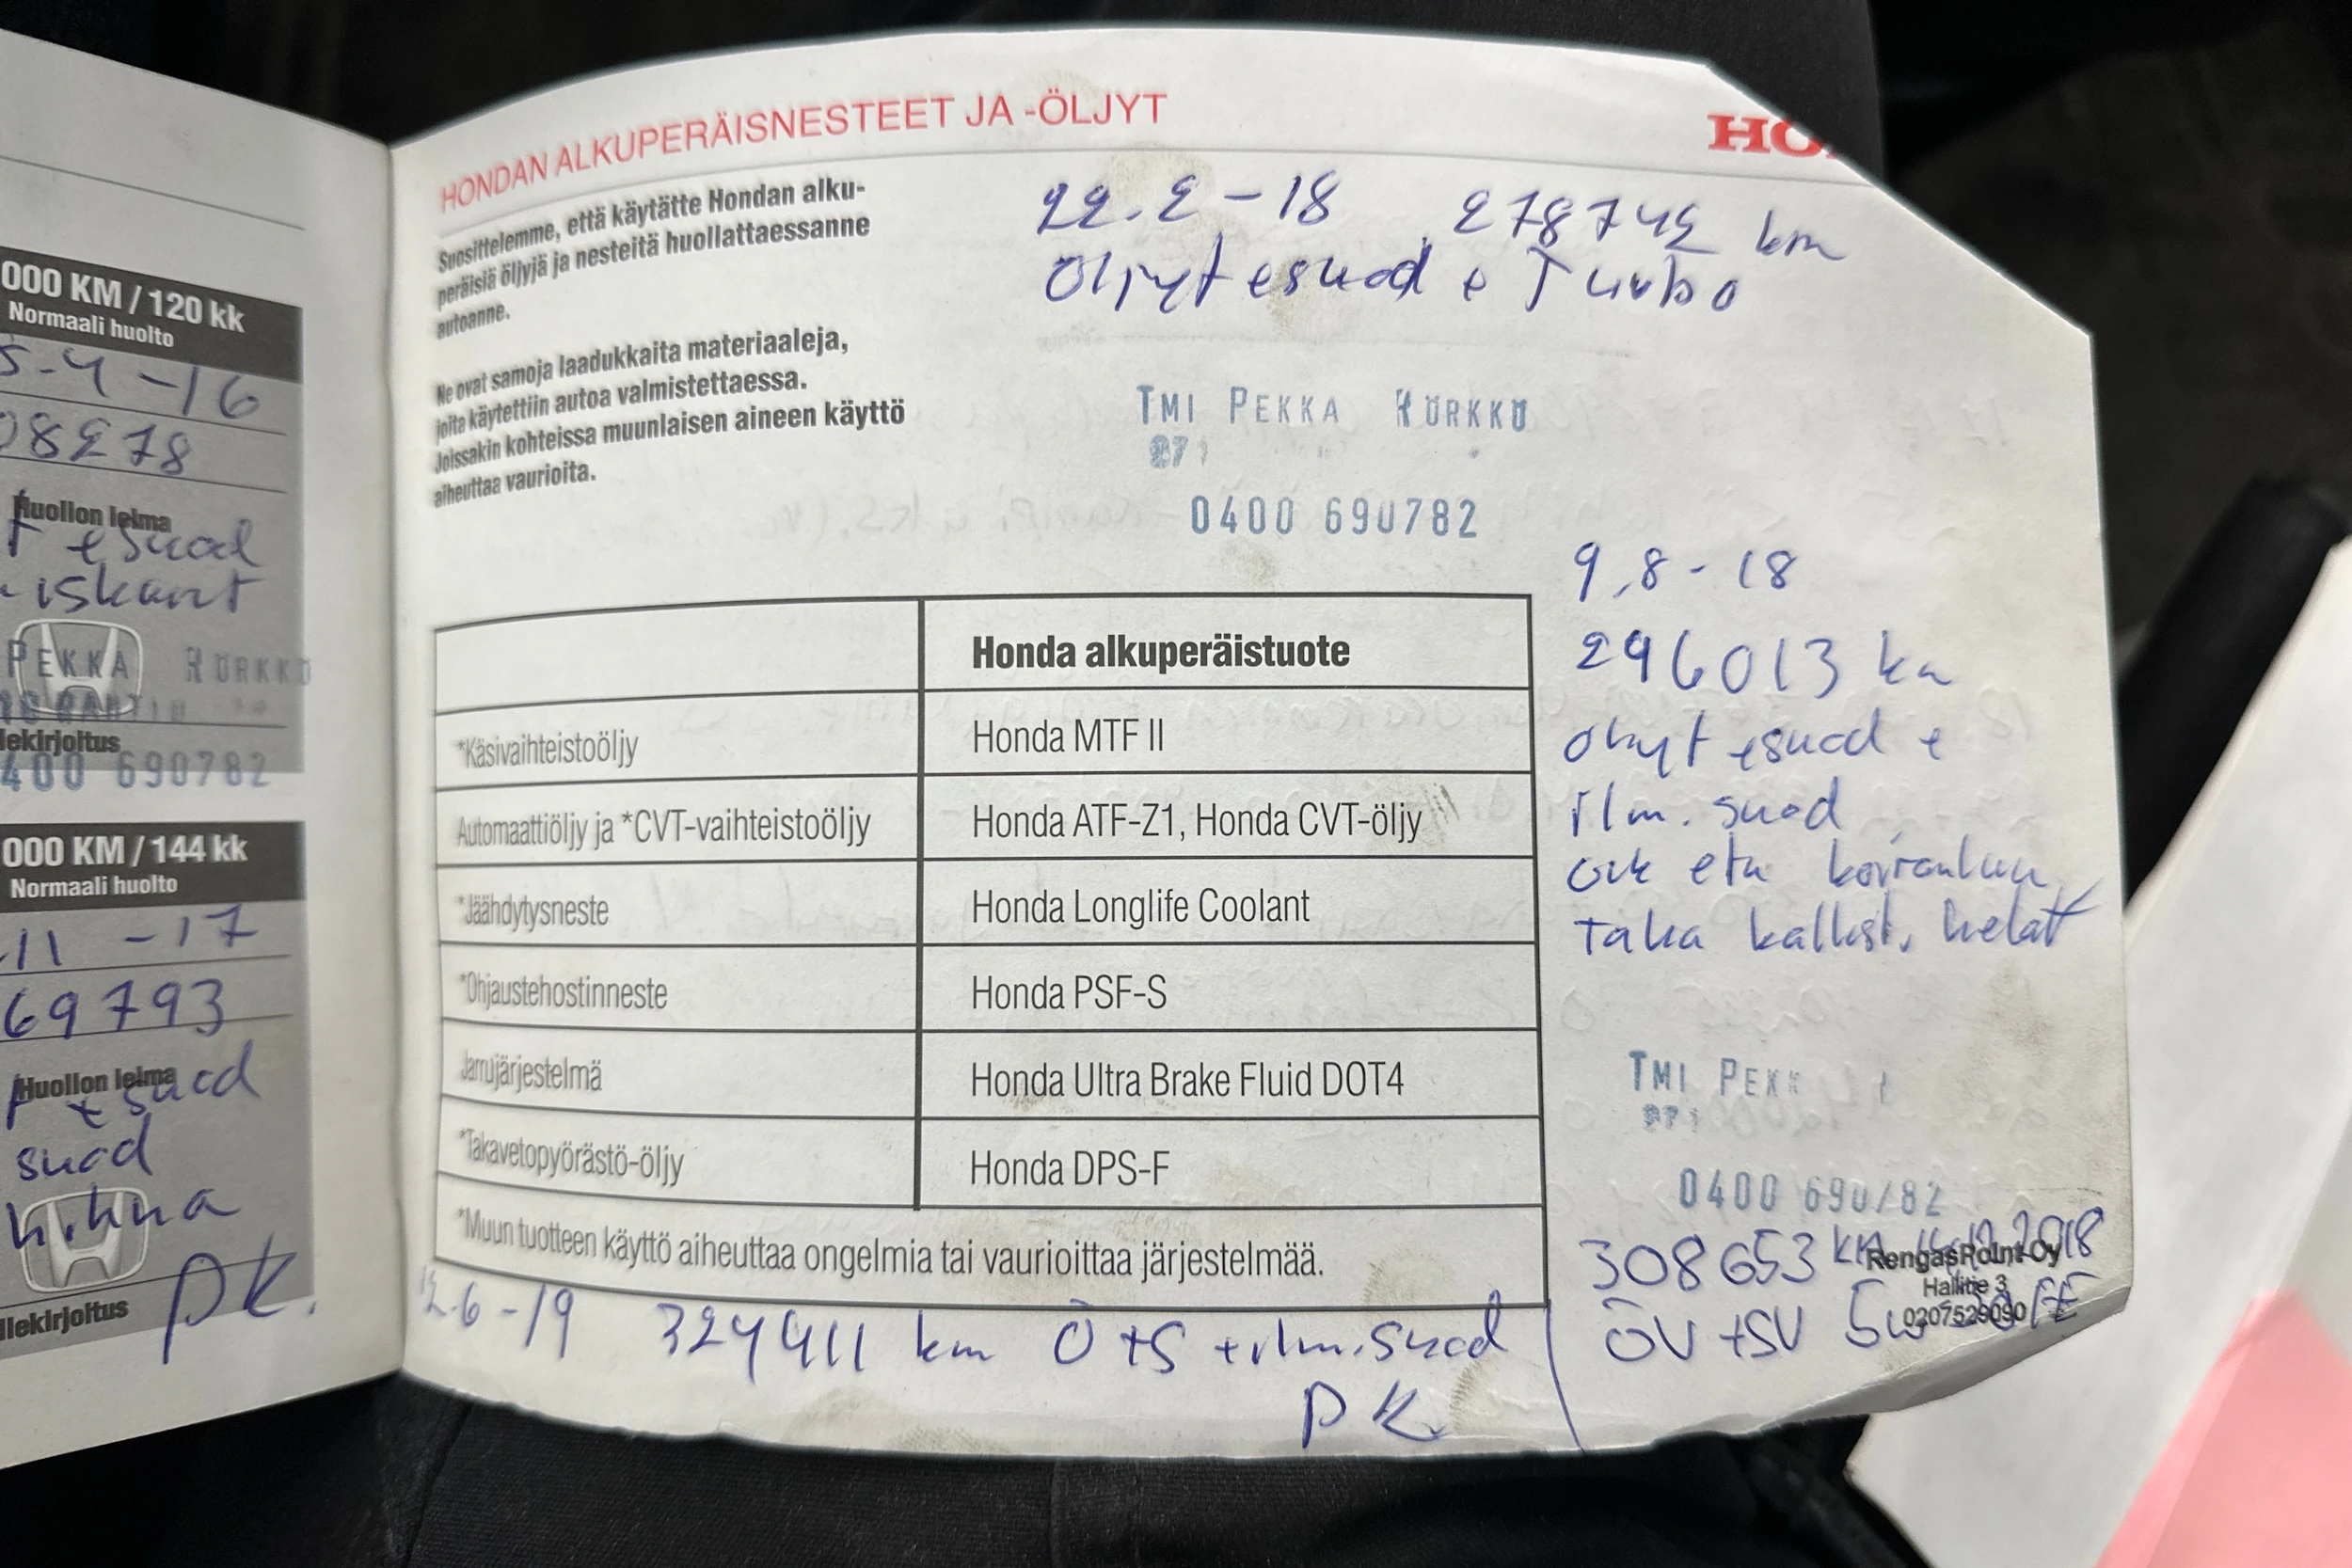 000 KM / 120 kk
Normaali huolto
5-4-16
08278
Huollon leima
t + suod
iskant
PEKKA KÖRKKÖ
lekirjoitus
400 690782
000 KM / 144 kk
Normaali huolto
11 -17
69793
Huollon leima
+ suod
suod
hihna
llekirjoitus
PK.
HONDAN ALKUPERÄISNESTEET JA -ÖLJYT
HO
Suosittelemme, että käytätte Hondan alku-
peräisiä öljyjä ja nesteitä huollattaessanne
autoanne.
Ne ovat samoja laadukkaita materiaaleja,
joita käytettiin autoa valmistettaessa.
Joissakin kohteissa muunlaisen aineen käyttö
aiheuttaa vaurioita.
22.2-18 278742 km
Öljyt + suod + Turbo
TMI PEKKA KÖRKKÖ
0400 690782
Honda alkuperäistuote
*Käsivaihteistoöljy Honda MTF II
Automaattiöljy ja *CVT-vaihteistoöljy Honda ATF-Z1, Honda CVT-öljy
*Jäähdytysneste Honda Longlife Coolant
*Ohjaustehostinneste Honda PSF-S
Jarrujärjestelmä Honda Ultra Brake Fluid DOT4
*Takavetopyörästö-öljy Honda DPS-F
*Muun tuotteen käyttö aiheuttaa ongelmia tai vaurioittaa järjestelmää.
9.8-18
296013 km
öljyt + suod +
ilm. suod
oik etu koiranluu
Taka kallist. helat
TMI PEKK
0400 690782
308653 km 14.12.2018
RengasPoint Oy
Hallitie 3
0207529090
ÖV + SV 5w
12.6-19 324411 km Ö+S + ilm.suod
PK.